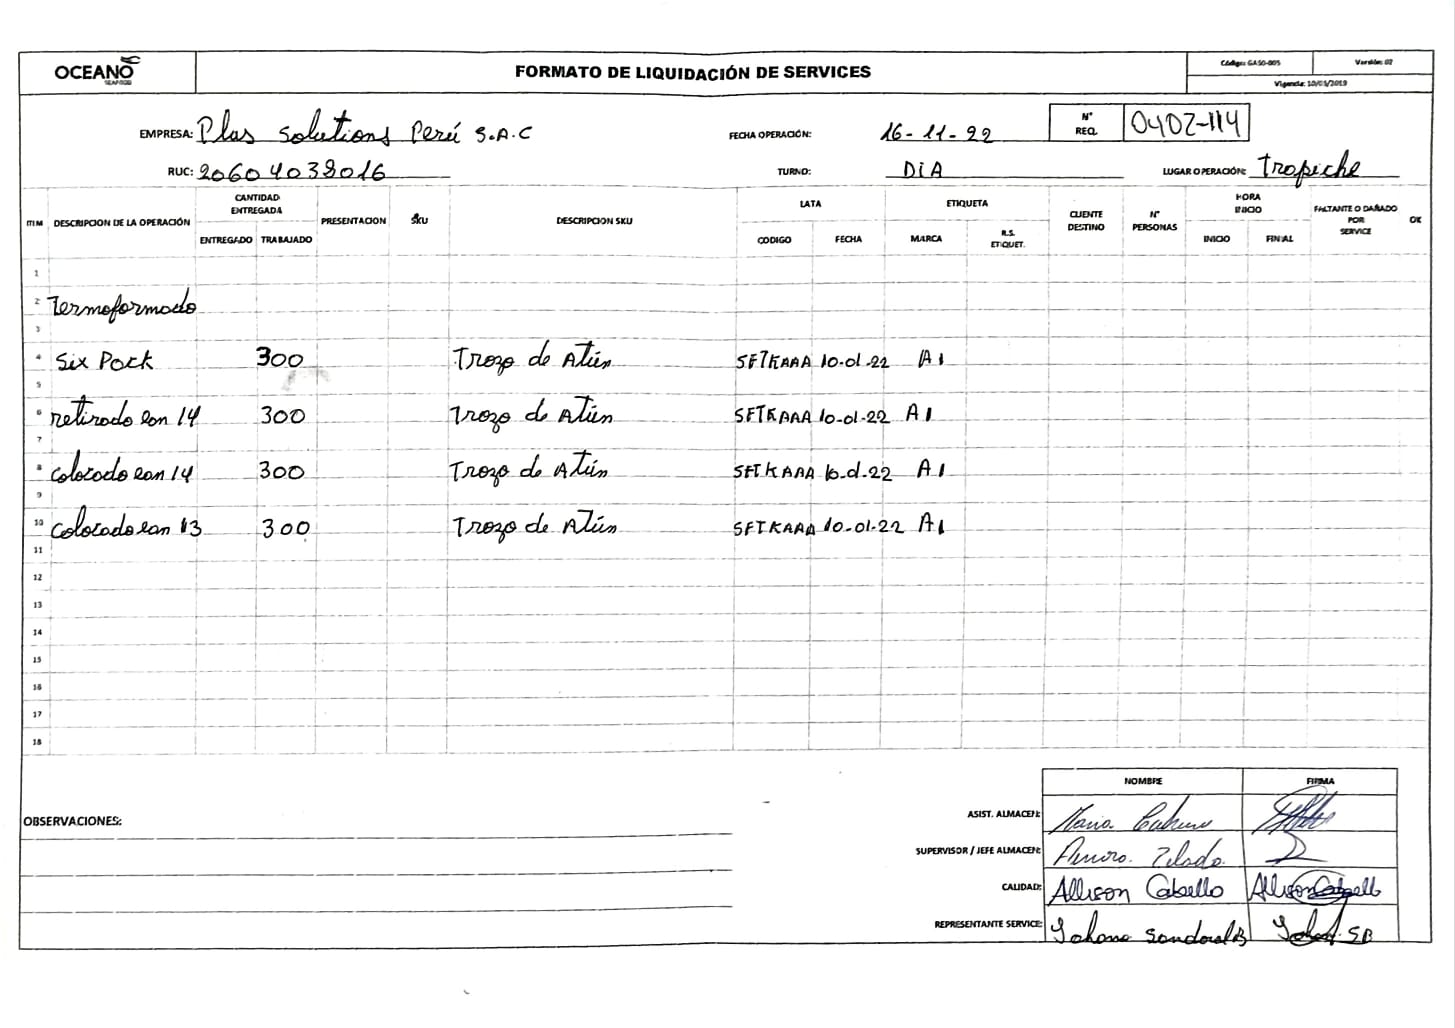 OCEANO SEAFOOD
FORMATO DE LIQUIDACIÓN DE SERVICES
Código: GASO-005 Versión: 02
Vigencia: 10/05/2019
EMPRESA: Plas Solutions Perú S.A.C FECHA OPERACIÓN: 16-11-22 N° REQ. 0402-114
RUC: 20604038016 TURNO: DIA LUGAR OPERACIÓN: Tropiche
ITM DESCRIPCION DE LA OPERACIÓN CANTIDAD ENTREGADA ENTREGADO TRABAJADO PRESENTACION SKU DESCRIPCION SKU LATA CODIGO FECHA ETIQUETA MARCA R.S. ETIQUET. CLIENTE DESTINO N° PERSONAS HORA INICIO INICIO FINAL FALTANTE O DAÑADO POR SERVICE OK
1
2 Termoformado
3
4 Six Pack 300 Trozo de Atún SFTKAAA 10-01-22 A1
5
6 retirado con 14 300 Trozo de Atún SFTKAAA 10-01-22 A1
7
8 Colocado con 14 300 Trozo de Atún SFTKAAA 10-01-22 A1
9
10 Colocado con 13 300 Trozo de Atún SFTKAAA 10-01-22 A1
11
12
13
14
15
16
17
18
NOMBRE FIRMA
OBSERVACIONES:
ASIST. ALMACEN: Maria
SUPERVISOR / JEFE ALMACEN:
CALIDAD: Allison Cabello Allison Cabello
REPRESENTANTE SERVICE: Johana Sandoval B S.B